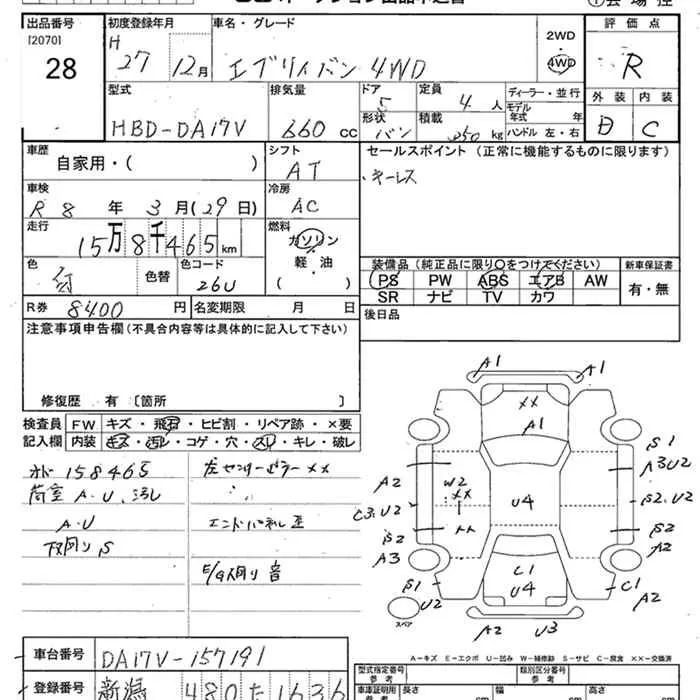 出品番号 初度登録年月 車名・グレード 評価点
[2070] H 2WD
28 27 12月 エブリィバン 4WD 4WD R
型式 排気量 ドア 5 定員 4人 ディーラー・並行 外装 内装
HBD-DA17V 660 cc 形状 バン 積載 350 kg モデル年式 年 C
ハンドル 左・右
車歴 シフト セールスポイント (正常に機能するものに限ります)
自家用・( ) AT ・キーレス
車検 冷房
R 8 年 3月(29日) AC
走行 燃料
15万8千465km ガソリン
色 色替 色コード 軽・油 装備品 (純正品に限り○をつけてください) 新車保証書
26U ( ) PS PW ABS エアB AW 有・無
SR ナビ TV カワ
R券 8400 円 名変期限 月 日 後日品
注意事項申告欄(不具合内容等は具体的に記入して下さい)
修復歴 有 〔箇所 〕
検査員 FW キズ・飛石・ヒビ割・リペア跡・×要
記入欄 内装 キズ・汚レ・コゲ・穴・スレ・キレ・破レ
158465 左センターピラー××
荷室 A・U、汚レ
A・U エンドパネル
下回りS
E/G回り 音
A1 A1
××
A1
S1
A2 A3U2
W2
××
C3、U2 U4 S2、U2
S2 S2
××
A3 A2
C1
S1 U4 C1
U2 A2
スペア
A2 U3
A-キズ E-エクボ U-凹み W-補修跡 S-サビ C-腐食 ××-交換済
車台番号 DA17V-157191 型式指定番号 参考 類別区分番号 参考
登録番号 新潟 480 た 1636 車庫証明用 参考 長さ cm 幅 cm 高さ cm